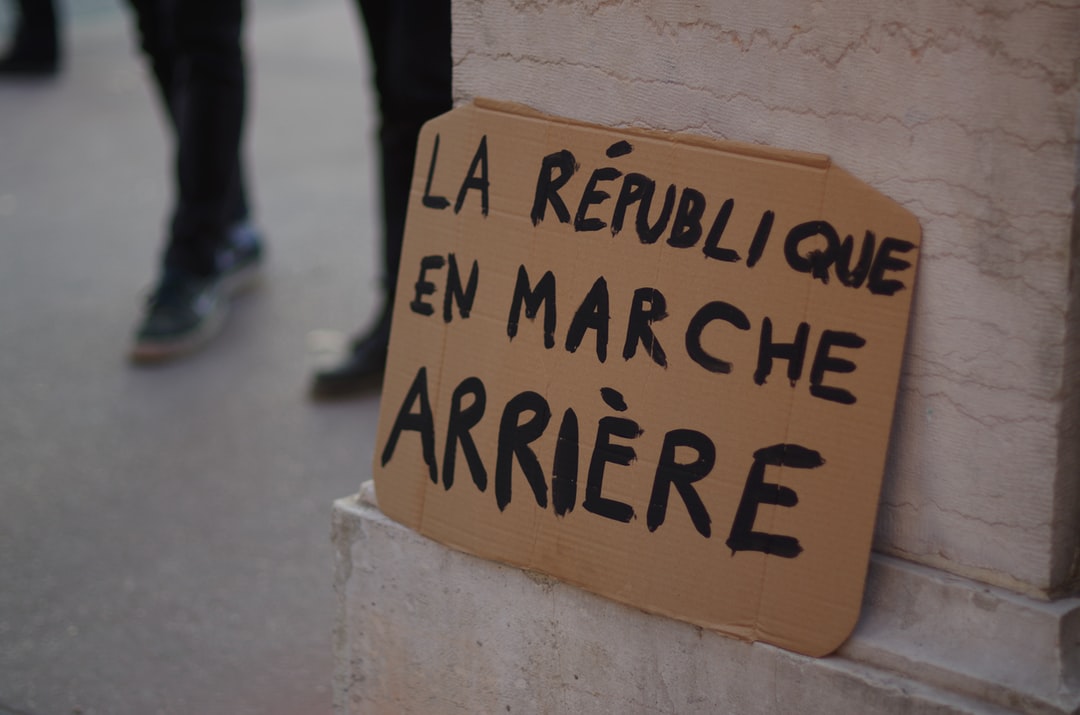 LA RÉPUBLIQUE
EN MARCHE
ARRIÈRE